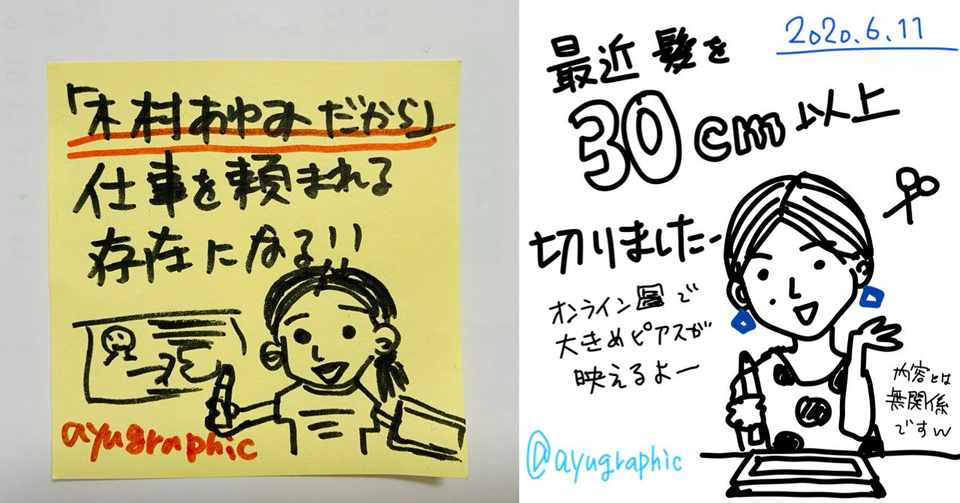 「木村あゆみだから」
仕事を頼まれる
存在になる!!
ayugraphic
2020.6.11
最近髪を
30cm以上
切りましたー
オンライン で
大きめピアスが
映えるよー
内容とは
無関係
ですw
@ayugraphic